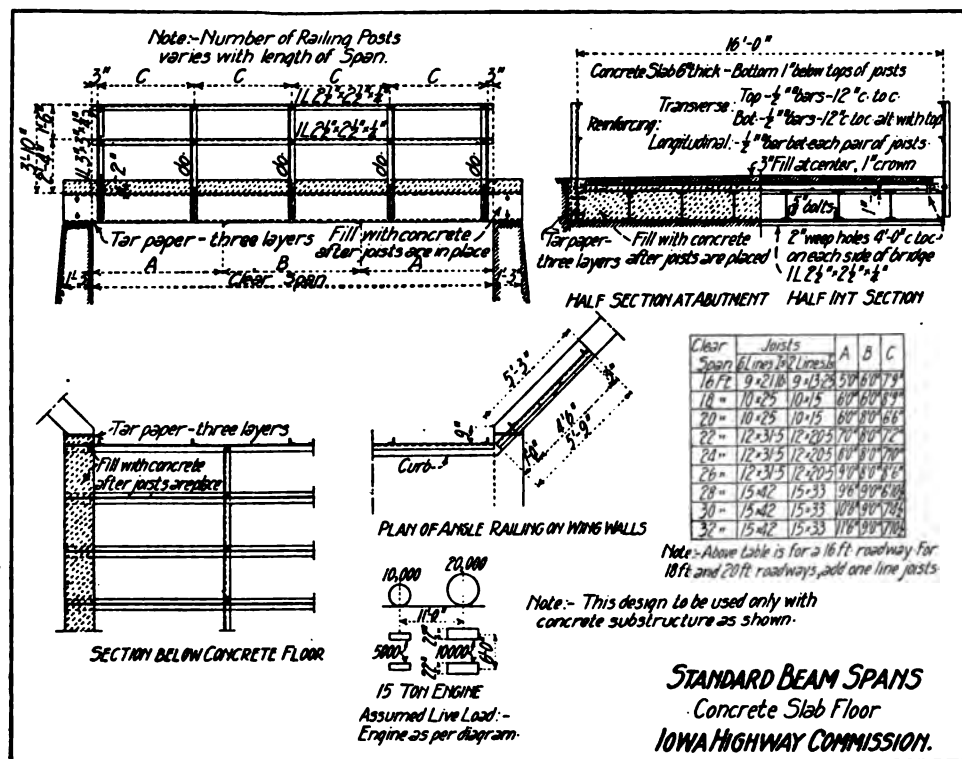 Note:-Number of Railing Posts
varies with length of Span.
3" C C C C 3"
1L 2½"×2½"×¼"
1L 2½"×2½"×¼"
3'-10"
do do do do
Tar paper-three layers
Fill with concrete
after joists are in place
A B A
Clear Span
1'-3" 1'-3"
16'-0"
Concrete Slab 6" thick-Bottom 1" below tops of joists
Reinforcing:
Transverse: Top-½"° bars-12" c. to c.
Bot-½"° bars-12" c to c alt with top
Longitudinal:-½"° bar bet each pair of joists
3" Fill at center, 1" crown
bolts 1"
Tar paper-
three layers
Fill with concrete
after joists are placed
2" weep holes 4'-0" c to c
on each side of bridge
1L 2½"×2½"×¼"
HALF SECTION AT ABUTMENT
HALF INT SECTION
Tar paper-three layers
Fill with concrete
after joists are place
SECTION BELOW CONCRETE FLOOR
5'-3"
9"
Curb
1'-0" 4'-6"
5'-9"
PLAN OF ANGLE RAILING ON WING WALLS
10,000 20,000
11'-0"
5000 10000
22" 22" 6'-0"
15 TON ENGINE
Assumed Live Load:-
Engine as per diagram.
Clear Span Joists A B C
6 Lines Is 2 Lines Is
16 Ft 9×21 lb 9×13·25 5'0" 6'0" 7'9"
18 " 10×25 10×15 6'0" 6'0" 8'9"
20 " 10×25 10×15 6'0" 8'0" 6'6"
22 " 12×31·5 12×20·5 7'0" 8'0" 7'2"
24 " 12×31·5 12×20·5 8'0" 8'0" 7'10"
26 " 12×31·5 12×20·5 9'0" 8'0" 8'6"
28 " 15×42 15×33 9'6" 9'0" 6'10½"
30 " 15×42 15×33 10'6" 9'0" 7'4½"
32 " 15×42 15×33 11'6" 9'0" 7'10½"
Note:-Above table is for a 16 ft roadway. For
18 ft and 20 ft roadways, add one line joists.
Note:- This design to be used only with
concrete substructure as shown.
STANDARD BEAM SPANS
Concrete Slab Floor
IOWA HIGHWAY COMMISSION.